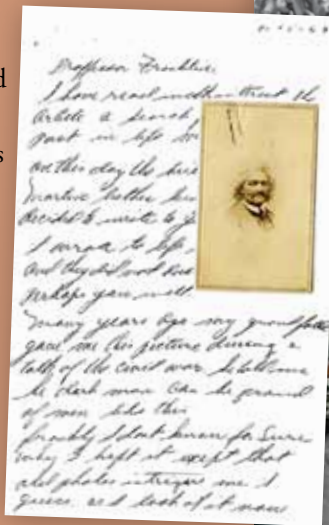 d
s
Professor Franklin:
I have read with interest the
article a search
past in life
on this day the
Martin Luther
decided to write to
I wrote to life,
and they did not
Perhaps you will.
Many years ago my grandfather
gave me this picture during a
talk of the civil war. he told me
the dark man can be proud
of men like this
frankly I dont know for sure
why I kept it except that
old photos intrigue me I
guess. as I look at it now